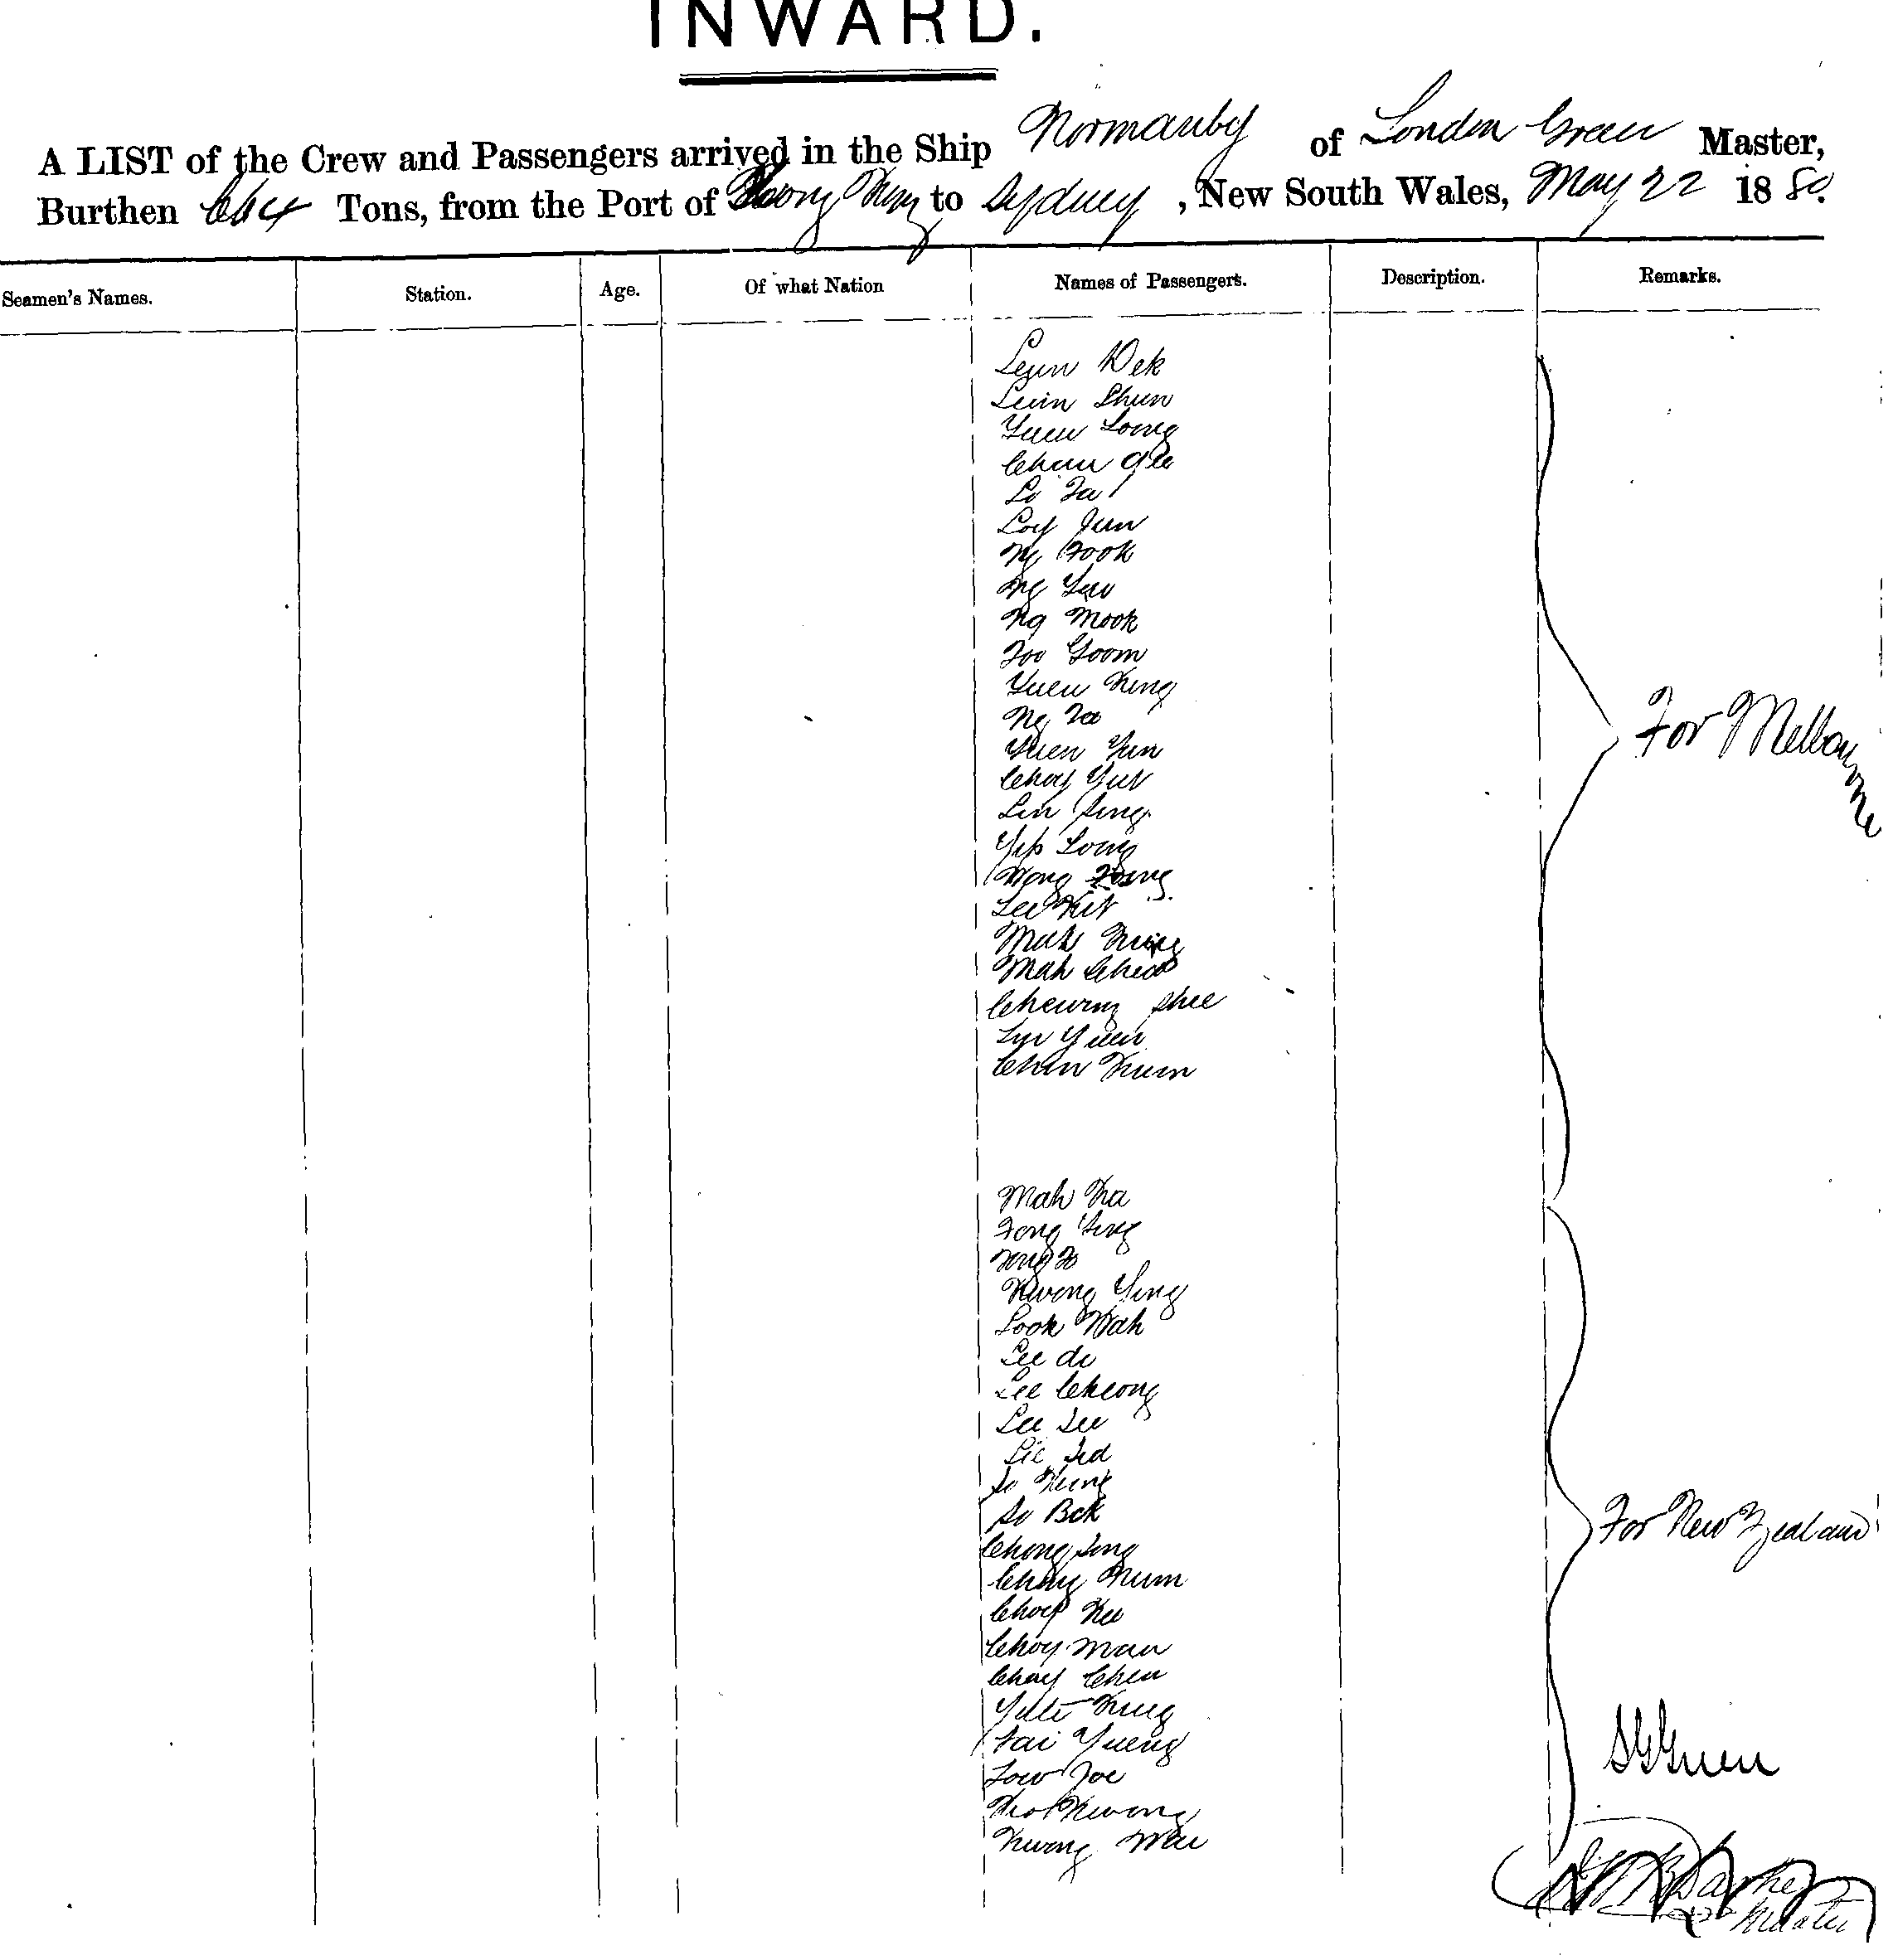 INWARD.
A LIST of the Crew and Passengers arrived in the Ship Normanby of London Green Master,
Burthen 664 Tons, from the Port of Hong Kong to Sydney, New South Wales, May 22 1880.
Seamen's Names. Station. Age. Of what Nation Names of Passengers. Description. Remarks.
Leun Wek
Leun Shun
Yuen Long
Chun
Lo Fa
Loy Jun
Ng Fook
Ng Yuu
Ng Mook
Foo Goom
Yuen King
Ng Fa
For Melbourne
Yuen Yun
Choy Yut
Lin Sing
Yip Long
Wong
Lee Kit
Mah King
Mah
Cheung Shee
Yuen
Chin Kum
Mah Ka
Fong Ying
Fong Fo
Kwong Ying
Look Wah
Lee do
Lee Cheong
Lee See
Lee
So Kung
So Bek
For New Zealand
Chong Sing
Choy Kum
Choy Kee
Choy Man
Choy Chew
King
Tai Yueng
Low Joe
Kwong
Kwong Wai
Green
Master